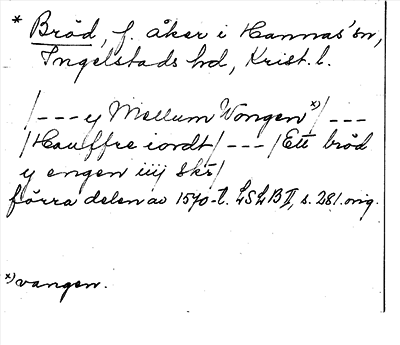 * Bröd, f. åker i Hannas' sn,
Ingelstads hd, Krist. l.
/--- y Mellum Wongen x)/ ---
/Hauffre iordt/ --- /Ett bröd
y engen iiij skr/
förra delen av 1570-t. LSLB II, s. 281. orig.
x) vangen.